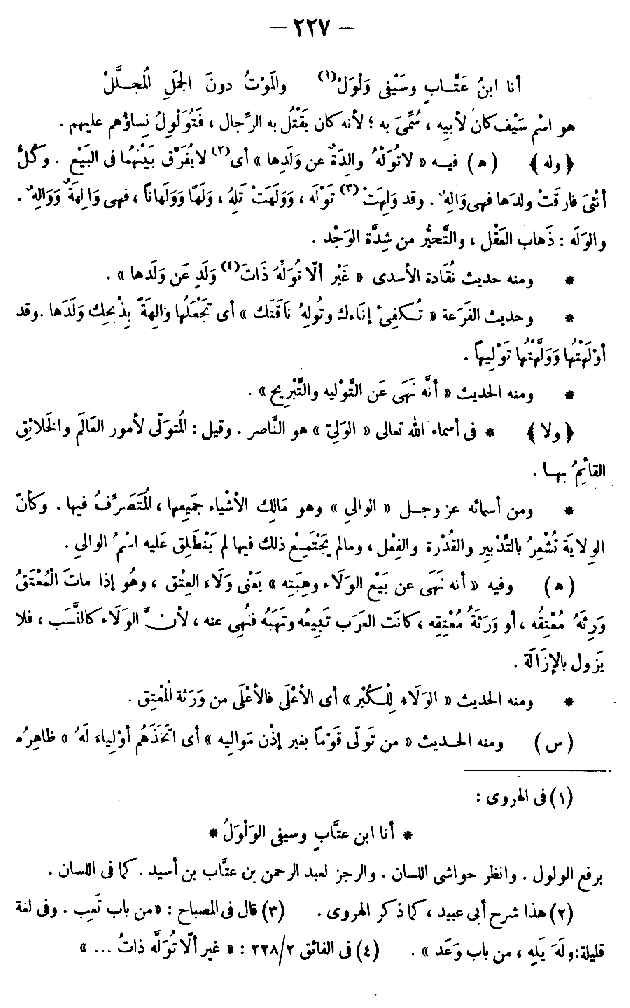 — ٢٢٧ —
أنا ابنُ عَتَّابٍ وسَيْفِى وَلْوَلْ (١) والمَوْتُ دونَ الجَمَلِ المُجَلَّلْ
هو اسْم سَيْف كان لأبيه ، سُمِّىَ به ؛ لأنه كان يَقْتُل به الرِّجال ، فَتُوَلْوِلُ نِساؤهم عليهم .
﴿ وله ﴾ (ه) فيه « لاتُوَلَّهُ والِدَةٌ عن وَلَدِها » أى (٢) لايُفَرَّق بَيْنَهُما فى البَيْع . وكُلُّ
أنْثَى فارقَتْ ولدَها فهى والِهٌ . وقد وَلِهَتْ (٣) تَوْلَه ، ووَلَهَتْ تَلِهُ ، وَلَهًا ووَلَهَاناً ، فهى وَالِهَةٌ ووَالِهٌ .
والوَلَه : ذَهاب العَقْل ، والتَّحَيُّر من شِدَّة الوَجْد .
* ومنه حديث نُقادَة الأسدى « غَيْرَ ألاّ تُوَلِّهَ ذَاتَ (٤) وَلَدٍ عَن وَلَدها » .
* وحديث الفَرَعة « تُكفِئُ إنَاءك وتُولِهُ نَاقَتَك » أى تَجْعَلُها والِهَةً بِذَبْحِك وَلَدَها . وقد
أوْلَهْتُها ووَلَّهْتُها تَوْلِيهًا .
* ومنه الحديث « أنَّه نَهَى عَن التَّوْليه والتَّبْرِيح » .
﴿ ولا ﴾ * فى أسماء الله تعالى « الوَلِىّ » هو النَّاصر . وقيل : المُتَولِّى لأمور العَالَم والخَلائق
القائمُ بهـا .
* ومن أسمائه عز وجل « الوالِي » وهو مَالِك الأشْياء جَمِيعِها ، المُتَصَرِّفُ فيها . وكأنّ
الوِلايَة تُشْعِر بالتَّدْبير والقُدْرة والفِعْل ، ومالم يَجْتَمِعْ ذلك فيها لم يَنْطَلِق عَليه اسْمُ الوالِي .
(ه) وفيه « أنه نَهَى عن بَيْع الوَلَاء وهِبَتِه » يَعْنى وَلَاء العِتْق ، وهُو إذا ماتَ المُعْتَقُ
وَرِثَهُ مُعْتِقُه ، أو وَرَثَةُ مُعْتِقه ، كانَت العَرَب تَبِيعُه وتَهَبُه فنُهِى عنه ، لأنَّ الوَلَاء كالنَّسَب ، فلا
يَزول بالإزَالَة .
* ومنه الحديث « الوَلَاء لِلْكُبْر » أى الأعْلَى فالأعْلَى من وَرَثة المُعْتِق .
(س) ومنه الحـديث « من تَوَلَّى قَوْماً بغير إذْن مَواليه » أى اتَّخَذَهُم أوْلياءَ لَهُ » ظاهِرُه
(١) فى الهروى :
* أنا ابن عتَّابٍ وسيفى الوَلْولُ *
برفع الولول . وانظر حواشى اللسان . والرجز لعبد الرحمن بن عتَّاب بن أسيد . كما فى اللسان .
(٢) هذا شرح أبى عبيد ، كما ذكر الهروى . (٣) قال فى المصباح : « من باب تَعِب . وفى لغة
قليلة : ولَهَ يَلِه ، من باب وَعَد » . (٤) فى الفائق ٢/٢٢٨ : « غير ألاّ تُوَلَّه ذاتُ ... »